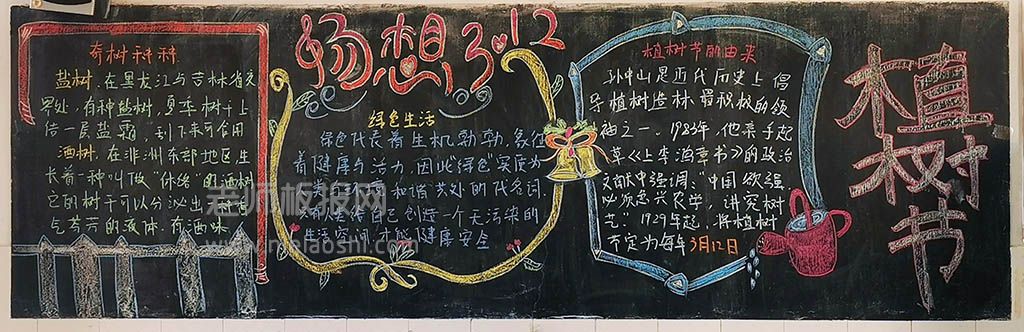 畅想3.12
植树节
奇树种种
盐树，在黑龙江与吉林省交
界处，有种盐树，夏季树干上
结一层盐霜，刮下来可食用
酒树，在非洲东部地区生
长着一种叫做“休洛”的酒树
它的树干可以分泌出
气芳芳的液体，有酒味
绿色生活
绿色代表着生机勃勃，象征
着健康与活力，因此“绿色”实质为
和谐共处的代名词，
自己创造一个无污染的
生活空间，才能健康安全
植树节的由来
孙中山是近代历史上倡
导植树造林最积极的领
袖之一。1983年，他亲手起
草《上李鸿章书》的政治
文献中强调：“中国欲强，
必须急兴农学，讲究树
艺。”1929年起，将植树
节定为每年3月12日
老师板报网
www.meilaoshi.com